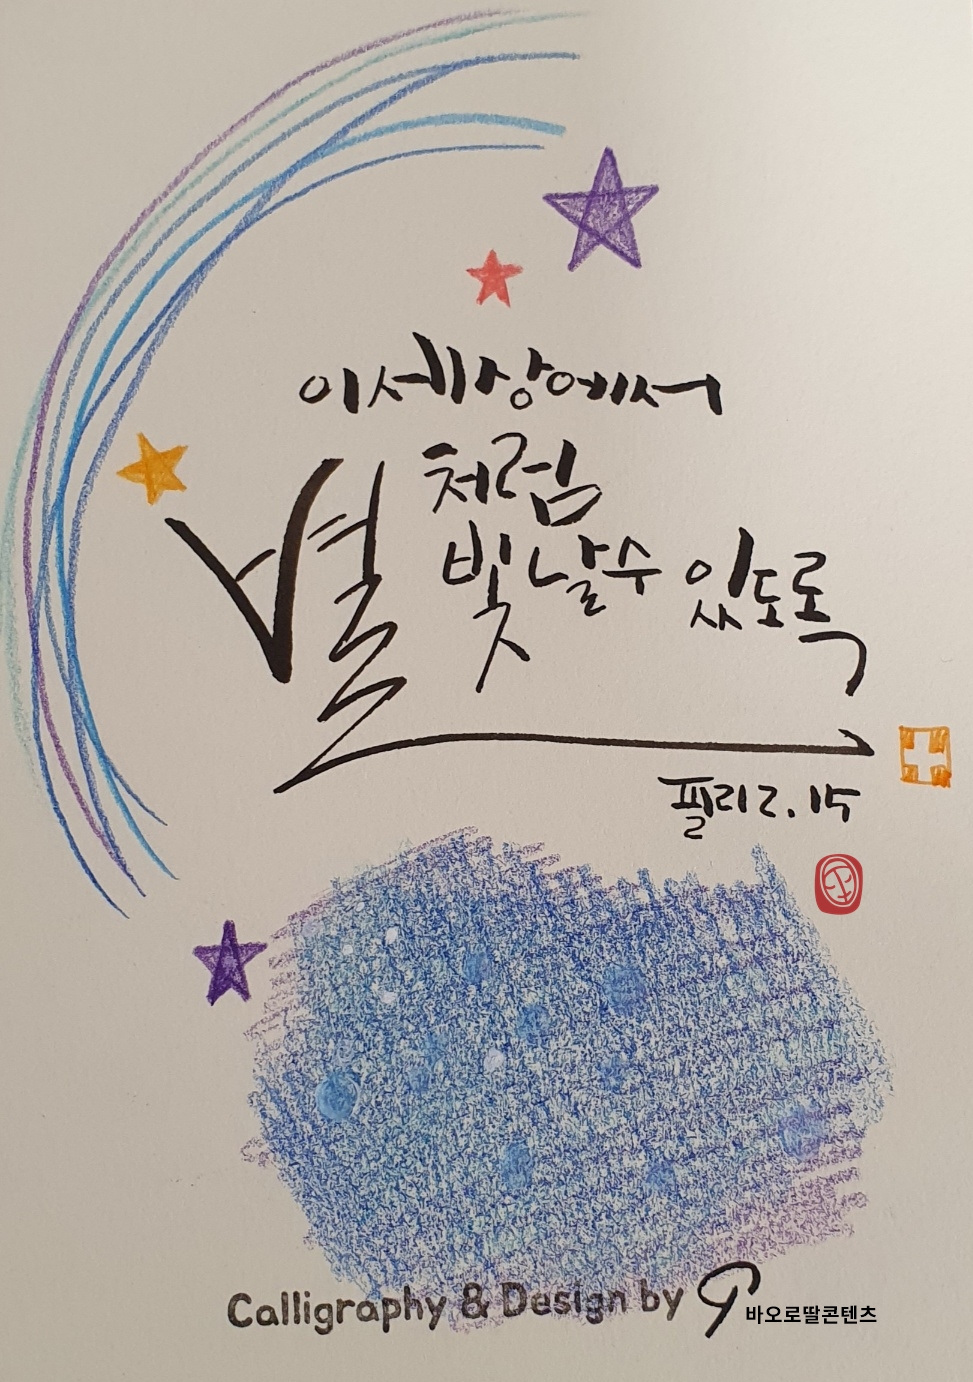 이 세상에서
별처럼
빛날 수 있도록
필리 2.15
Calligraphy & Design by
바오로딸콘텐츠